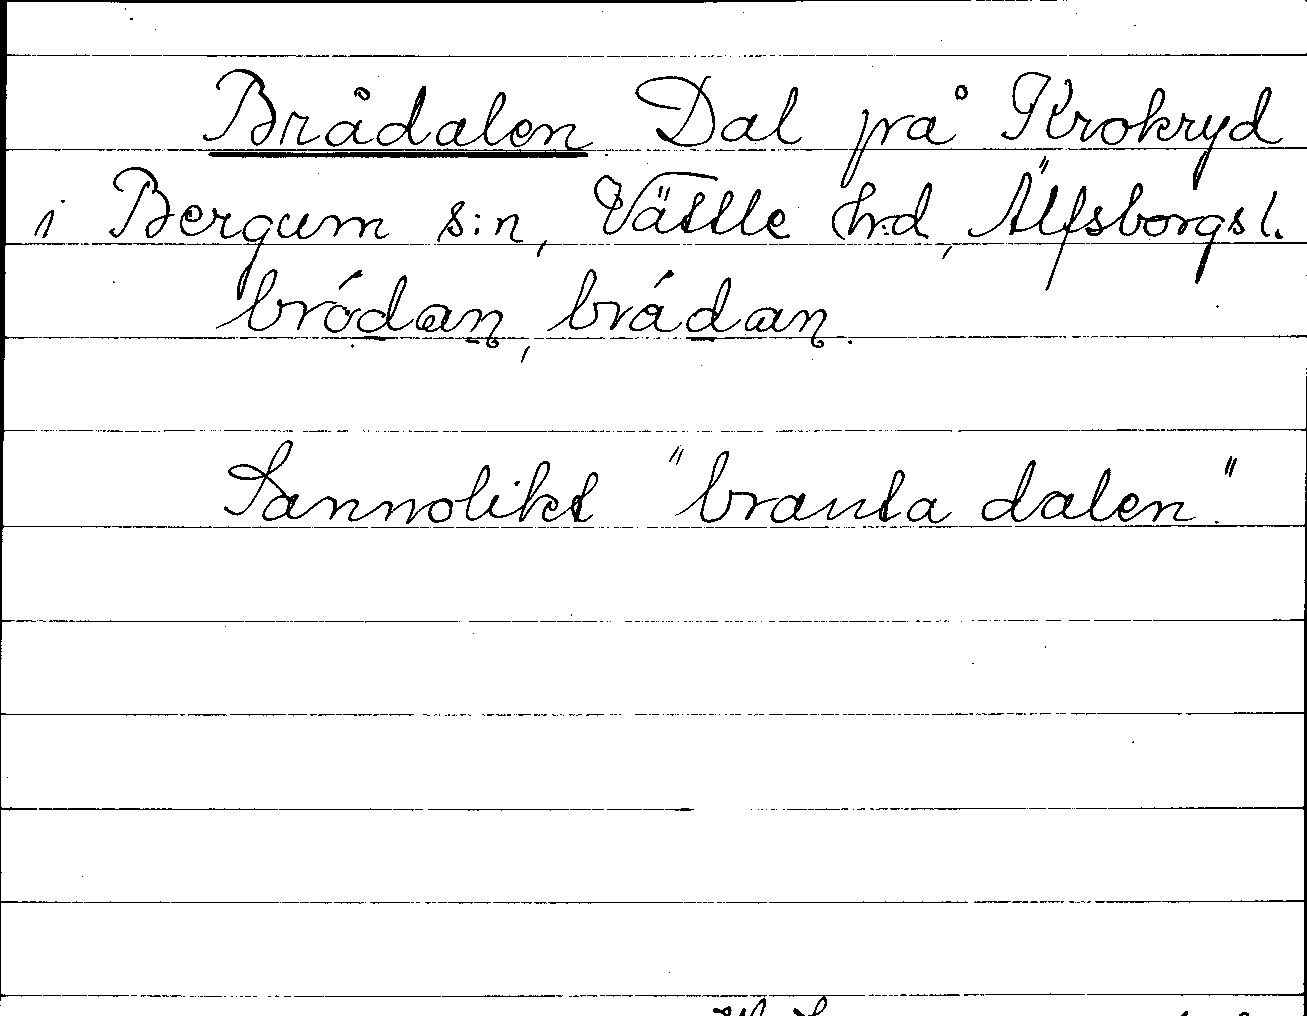 Brådalen Dal på Krokryd
i Bergum s:n, Vättle hd, Älfsborgs l.
bródan, brádan.
Sannolikt "branta dalen."